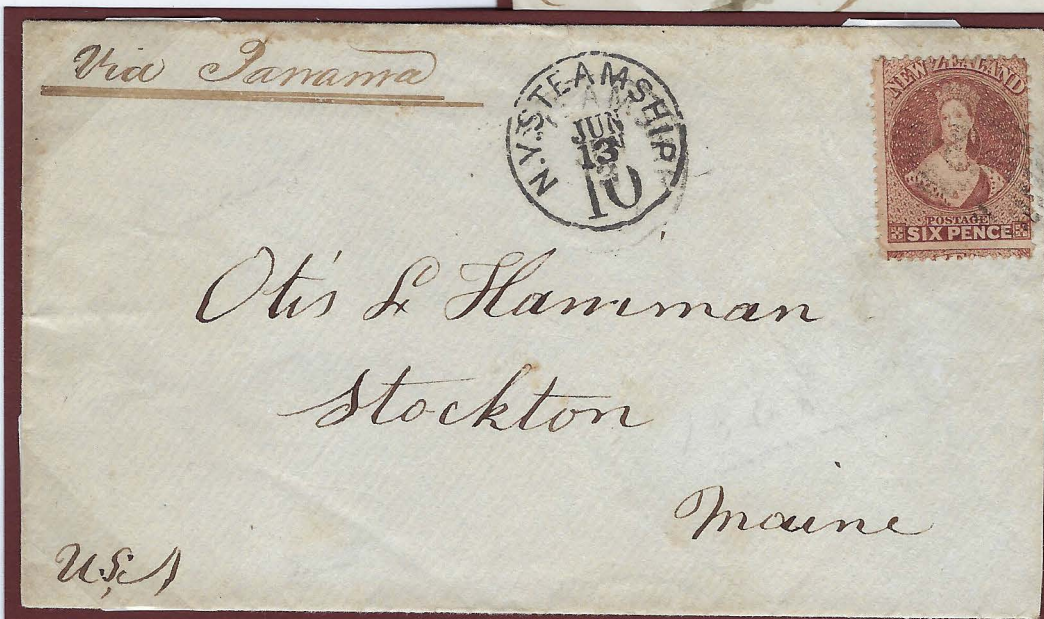 Via Panama
N.Y. STEAMSHIP
JUN
13
10
NEW ZEALAND
POSTAGE
SIX PENCE
Otis L Hamman
Stockton
Maine
U.S.A